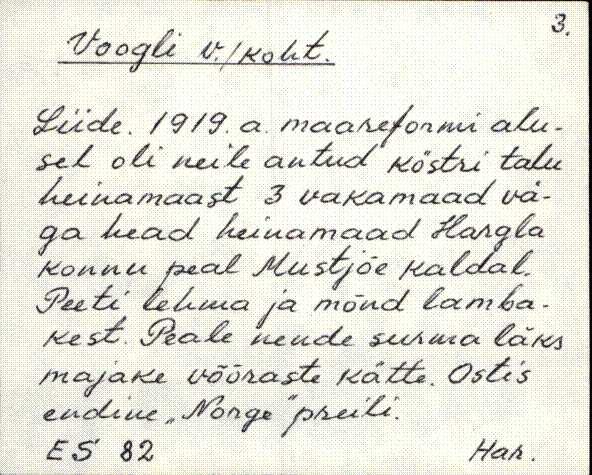 3.
Voogli v./koht.
Liide. 1919. a. maareformi alu-
sel oli neile antud köstri talu
heinamaast 3 vakamaad vä-
ga head heinamaad Hargla
konnu peal Mustjõe kaldal.
Peeti lehma ja mõnd lamba-
kest. Peale nende surma läks
majake võõraste kätte. Ostis
endine „Norge" preili.
ES 82 Har.